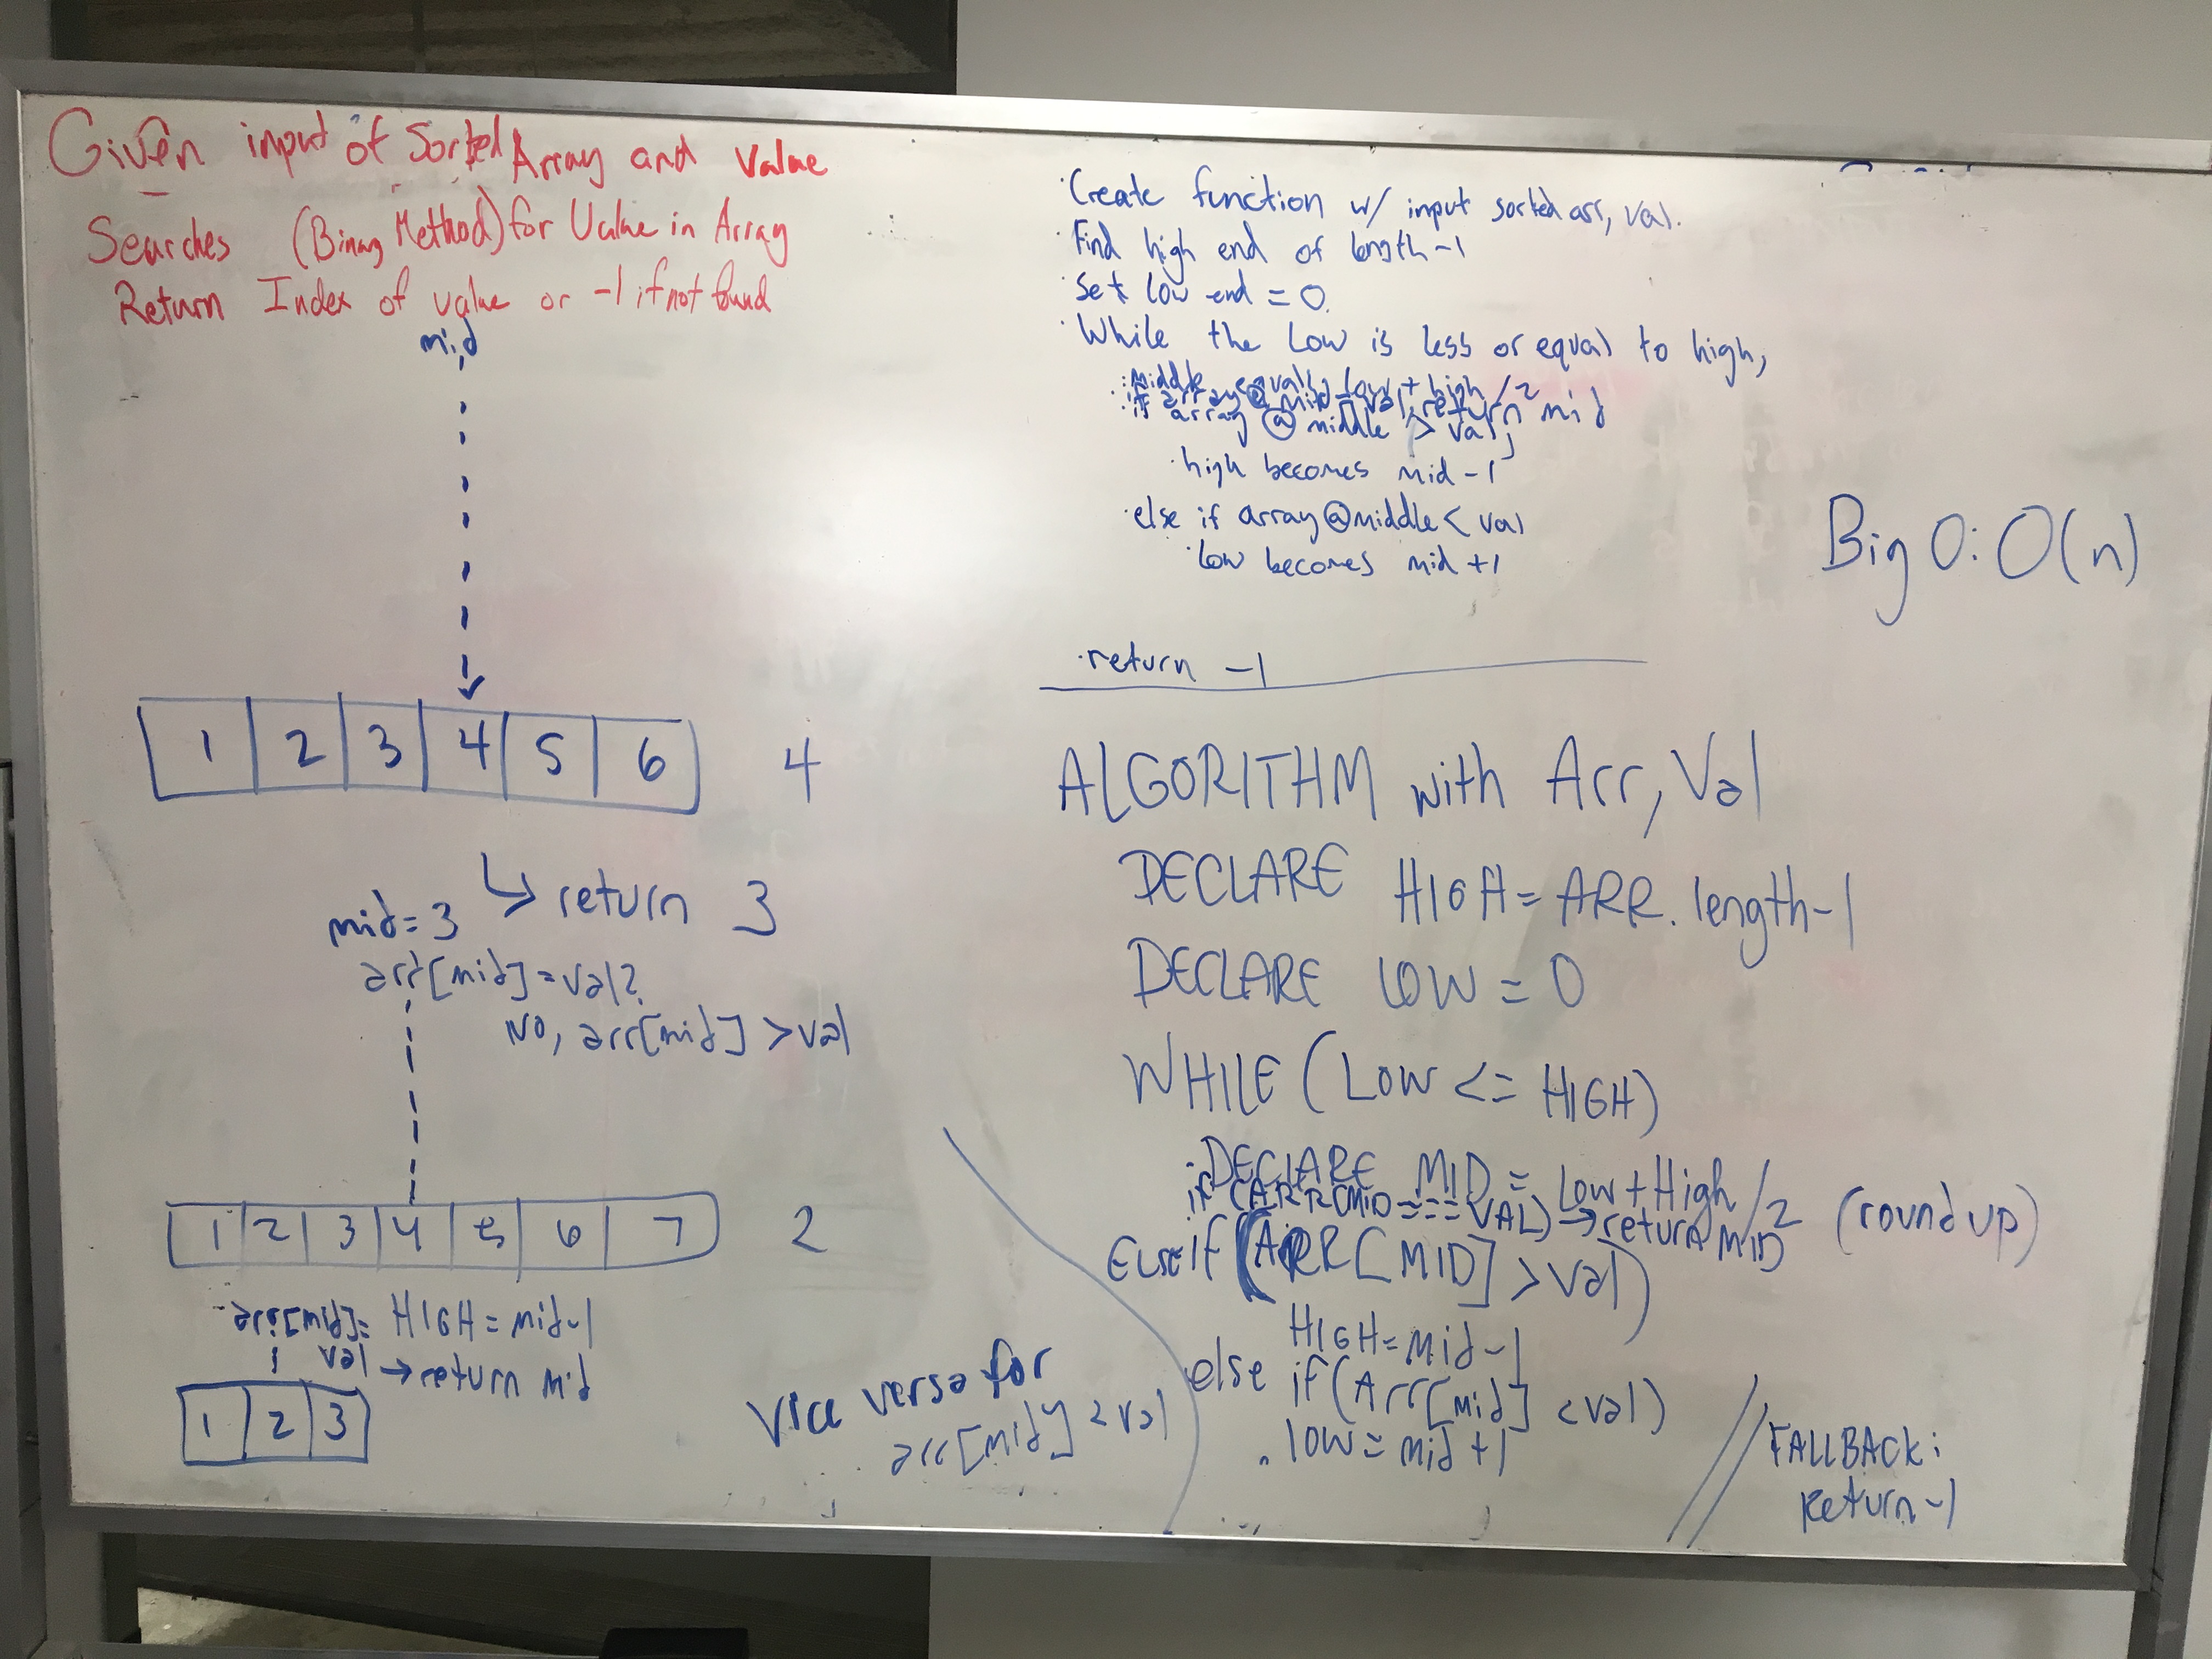 Given input of Sorted Array and Value
Searches (Binary Method) for Value in Array
Return Index of value or -1 if not found
mid
1 2 3 4 5 6 4
↳ return 3
mid=3
arr[mid]=val?
NO, arr[mid] > val
1 2 3 4 5 6 7 2
arr[mid]= HIGH = mid-1
val → return mid
1 2 3
Vice versa for
arr[mid] < val
· Create function w/ input sorted arr, val.
· Find high end of length-1
· Set low end = 0
· While the Low is less or equal to high,
· middle equals low + high /2
· if array @ mid = val, return mid
· if array @ middle > val,
· high becomes mid -1
· else if array @ middle < val
· low becomes mid +1
· return -1
Big O: O(n)
ALGORITHM with Arr, Val
DECLARE HIGH = ARR. length-1
DECLARE LOW = 0
WHILE (LOW <= HIGH)
· DECLARE MID = Low + High /2 (round up)
if (ARR[MID === VAL) → return MID
Else if (ARR[MID] > Val)
HIGH = Mid -1
else if (Arr[mid] < val)
. low = mid +1
// FALLBACK:
Return -1